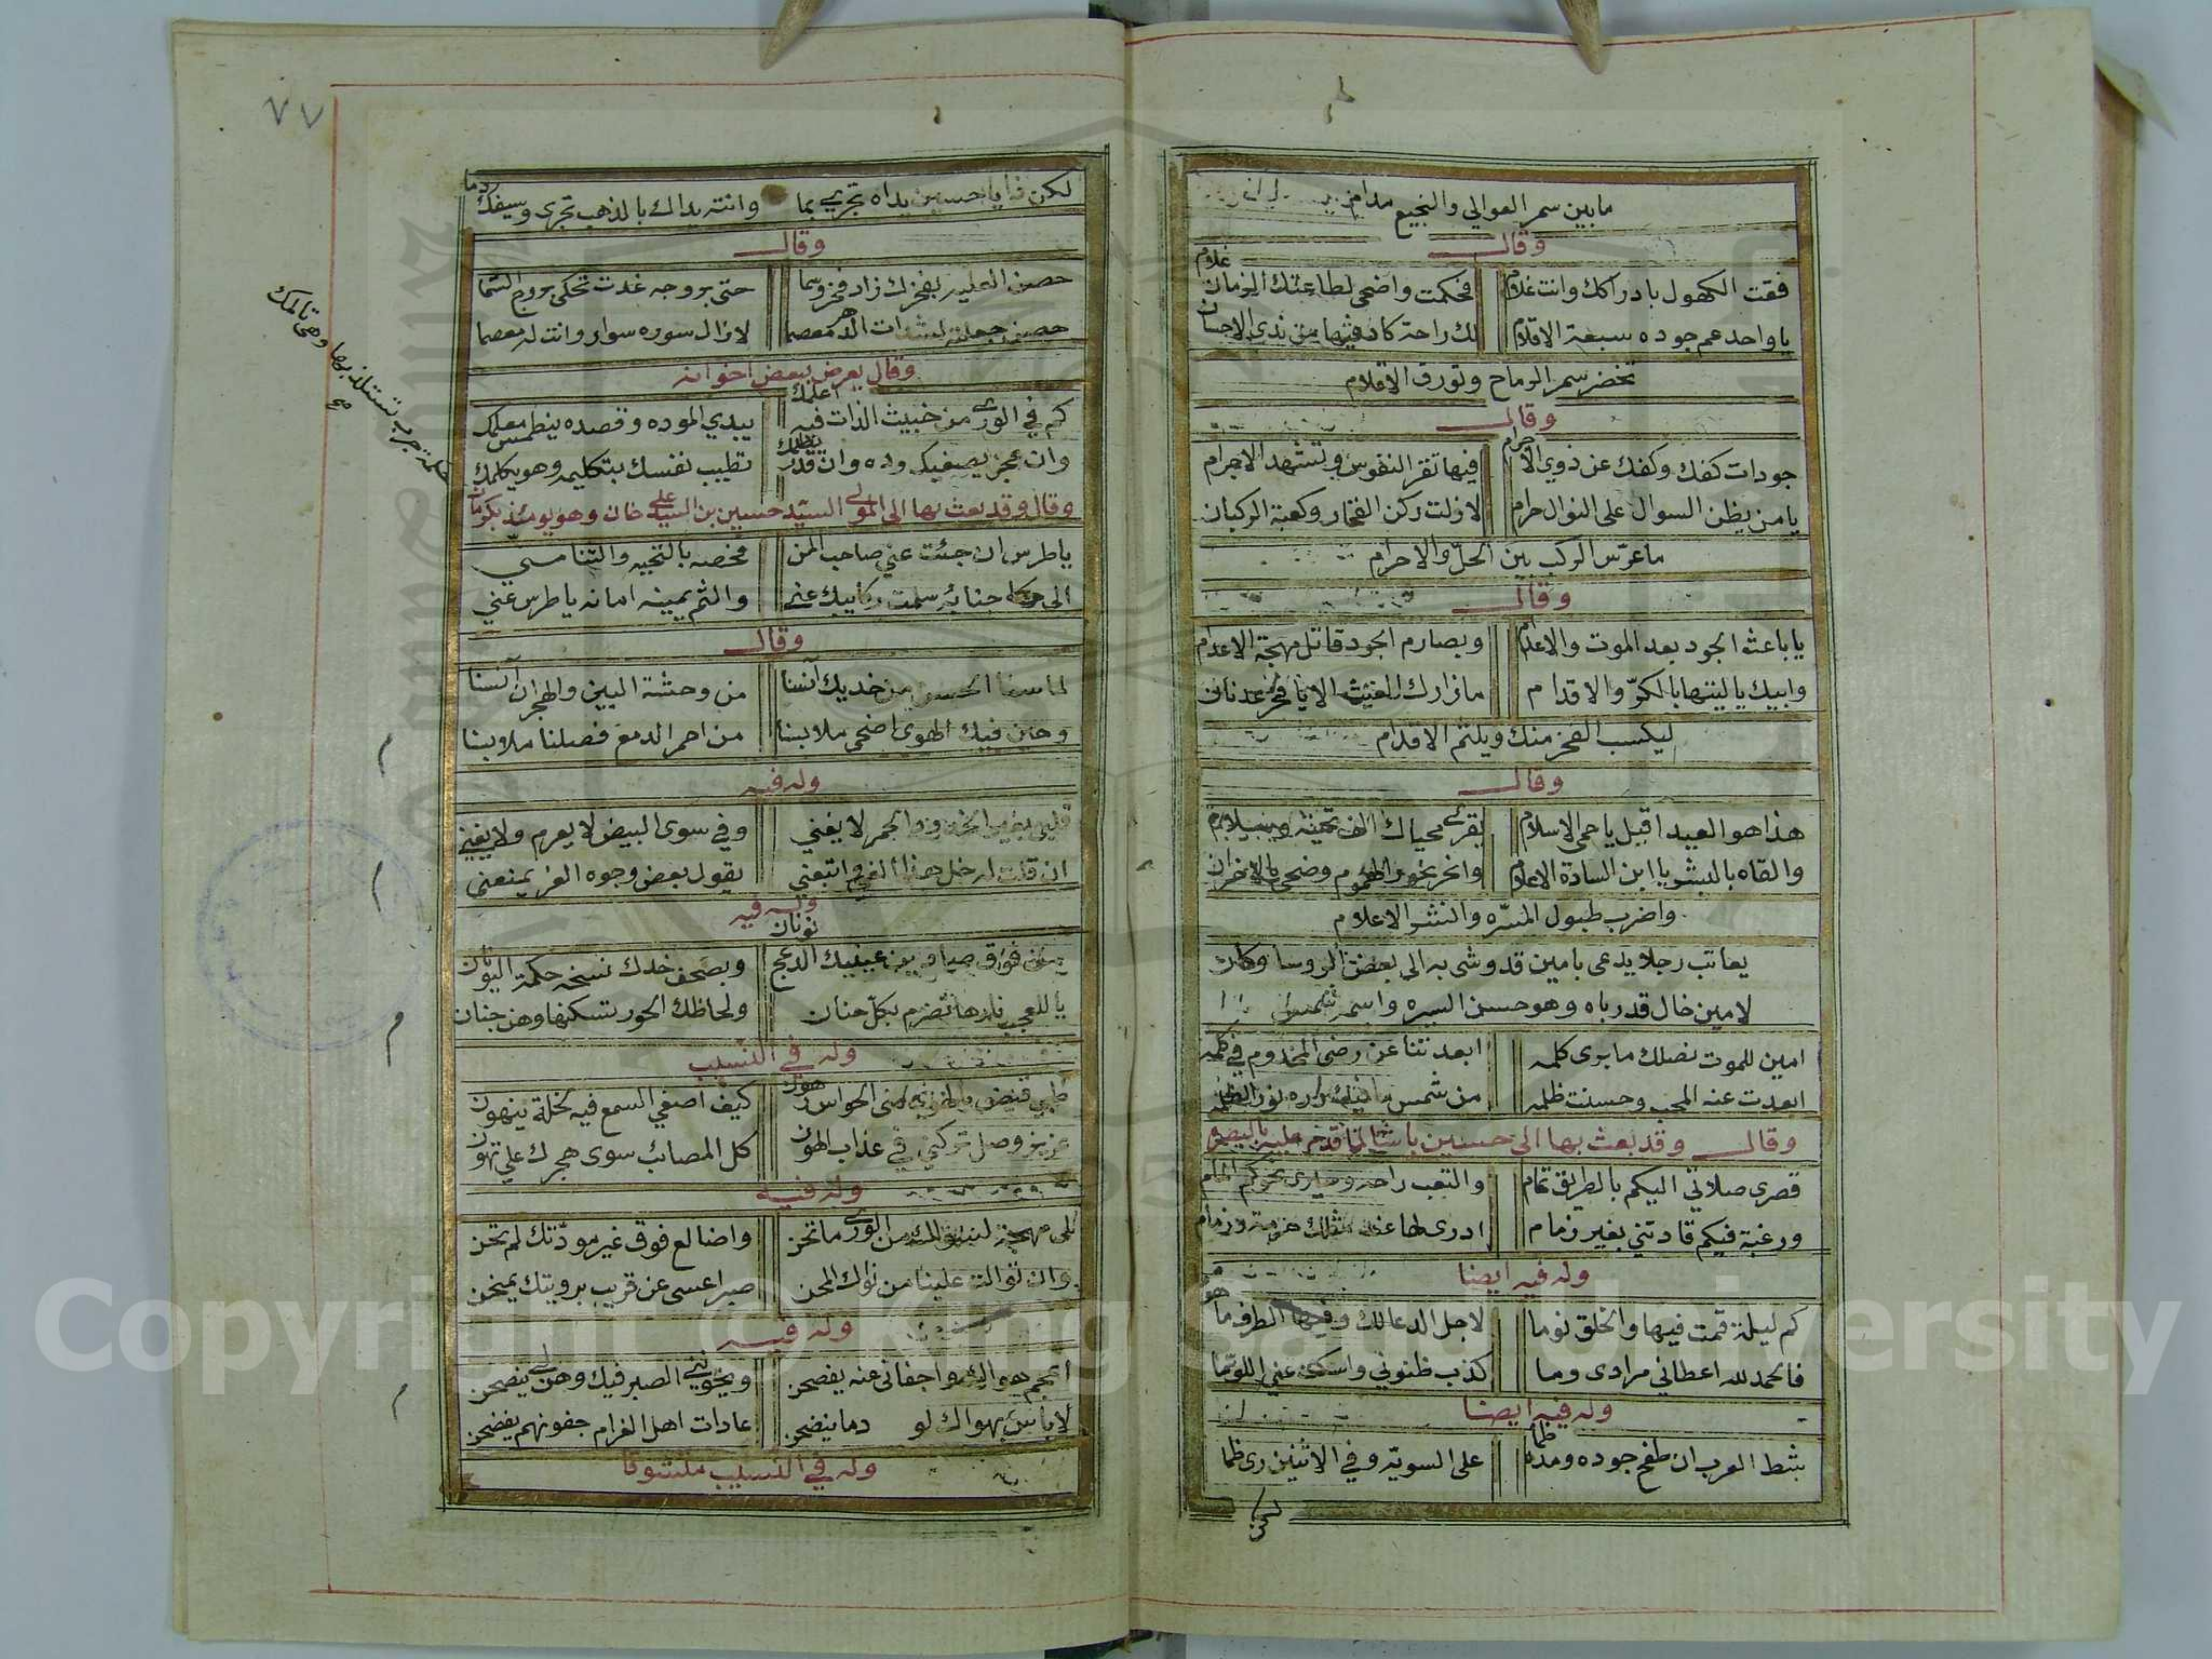 مابين سمر العوالي والنجيع مدام
وقال
فقت الكهول بادراكك وانت غلام فحكمت واضحى لطاعتك الزمان غلام
ياواحد عم جوده سبعة الاقلام لك راحة كاد فيها من ندى الاحسان
تخضر سمر الرماح وتورق الاقلام
وقال
جودات كفك وكفك عن ذوي الاجرام فيها تقر النفوس وتشهد الاجرام
يامن يظن السوال على النوال حرام لازلت ركن الفخار وكعبة الركبان
ماعرّس الركب بين الحلّ والاحرام
وقال
ياباعث الجود بعد الموت والاعدام وبصارم الجود قاتل مهجة الاعدام
وابيك ياليثها بالكرّ والاقدام مازارك الغيث الا يافخر عدنان
ليكسب الفخر منك ويلثم الاقدام
وقال
هذا هو العيد اقبل ياحمى الاسلام يقرئ محياك الف تحية وسلام
والقاه بالبشر يا ابن السادة الاعلام وانحر نحور الهموم وضحي بالاحزان
واضرب طبول المسرّه والنشر الاعلام
يعاتب رجلا يدعى بامين قد وشى به الى بعض الروسا وكان
لامين خال قد رباه وهو حسن السيره واسمه شمس
امين للموت نصلك مابرى كلمه ابعدتنا عن رضى المخدوم في كلمه
ابعدت عنه المحب وحسنت ظلمه من شمس
وقال وقد بعث بها الى حسين باشا لما قدم عليه بالبصره
قصرى صلاتي اليكم بالطريق تمام والتعب راحه
ورغبة فيكم قادتني بغير زمام ادرى لها عند مثلك حرمة وزمام
وله فيه ايضا
كم ليلة قمت فيها والخلق نوما لاجل الدعا لك وفيها الطرف ما هوما
فالحمد لله اعطاني مرادى وما كذب ظنوني واسكت عني اللوّما
وله فيه ايضا
بشط العرب ان طفح جوده ومده طما على السويّه وفي الاثنين رى ظما
لكن
٧٧
لكن ذا ياحسين يداه تجري بما وانته يداك بالذهب تجرى وسيفك دما
وقال
حصن العليه بفخرك زاد فخر وسما حتى بروجه غدت تحكى بروج السما
حصن جعلته لشدات الدهر معصما لازال سوره سوار وانت له معصما
وقال يعرض ببعض اخوانه
كم في الورى من خبيث الذات فيه اعلمك يبدي الموده وقصده ينطمس معلمك
وان عجز يصفيك وده وان قدر يظلمك تطيب نفسك بتكليمه وهو يكلمك
وقال وقد بعث بها الى المولى السيّد حسين بن السيد على خان وهو يومئذ بكرمان
ياطرس ان جئت عني صاحب المن فخصه بالتحيه والثنا مني
الى جنابه سلمت ركابيك عني والثم يمينه امانه ياطرس عني
وقال
لما سنا الحسن من خديك آنسنا من وحشة البين والهجران آنسنا
وحين فيك الهوى اضحى ملابسنا من احمر الدمع فصلنا ملابسنا
وله فيه
قلبي بغير الخدود الحمر لايغني وفي سوى البيض لايعرم ولايفني
ان قلت له خل هذا الغي واتبعني يقول بعض وجوه الغز يمنعني
وله فيه
من فوق صاد عينيك الدعج نونان وبصحف خدك نسخه حكمة اليونان
ياللعجب نارها تضرم بكل جنان ولحاظك الحور تسكنها وهن جنان
وله في النسيب
كيف اصغي السمع فيه لخلة ينهون
عزيز وصل تركني في عذاب الهون كل المصائب سوى هجرك علي تهون
وله فيه
لي مهجة لسوالك من الورى ماتحن واضالع فوق غير مودّتك لم تحن
وان توالت علينا من نواك المحن صبرا عسى عن قريب برويتك يمنحن
وله فيه
اعجم هواك واجفاني عنه يفصحن ويخونني الصبر فيك وهن لي ينصحن
لاباس بهواك لو دما ينضحن عادات اهل الغرام جفونهم يفضحن
وله في النسيب متشوقا